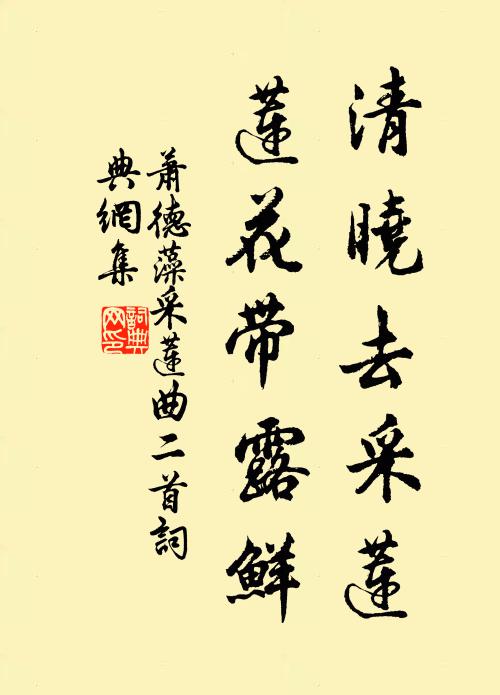 清曉去采蓮
蓮花带露鮮
蕭德藻采蓮曲二首詞
典網集
詞典网印